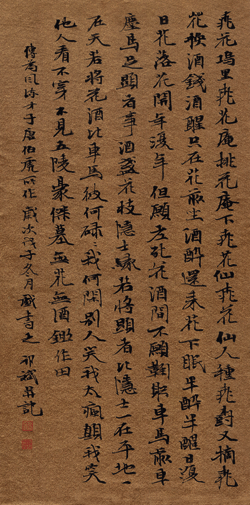 桃花塢里桃花庵桃花庵下桃花仙桃花仙人種桃樹又摘桃
花換酒錢酒醒只在花前坐酒醉還来花下眠半醉半醒日復
日花落花開年復年但願老死花酒間不願鞠躬車馬前車
塵馬足顯者事酒盞花枝隱士緣若將顯者比隱士一在平地一
在天若將花酒比車馬彼何碌碌我何閑別人笑我太瘋顛我笑
他人看不穿不見五陵豪傑墓無花無酒鋤作田
傳為風流才子唐伯虎所作歲次戊子冬月戲書之